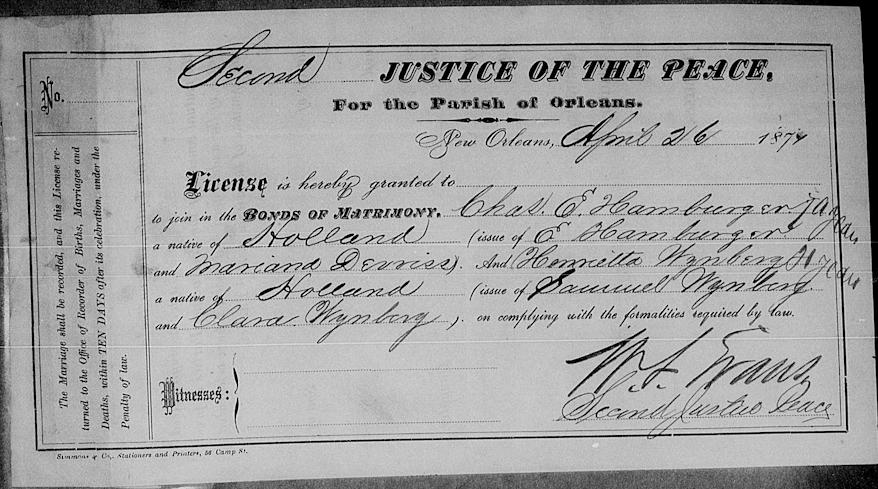 Second JUSTICE OF THE PEACE,
For the Parish of Orleans.
No.
New Orleans, April 26 1874
License is hereby granted to
to join in the BONDS OF MATRIMONY. Chas. E. Hamburger
a native of Holland (issue of E Hamburger
and Mariana Devriss). And Henrietta Wynberg
a native of Holland (issue of Samuel Wynberg
and Clara Wynberg ), on complying with the formalities required by law.
W. L. Evans
Witnesses:
Second Justice Peace
The Marriage shall be recorded, and this License re-
turned to the Office of Recorder of Births, Marriages and
Deaths, within TEN DAYS after its celebration, under the
Penalty of law.
Simmons & Co., Stationers and Printers, 56 Camp St.